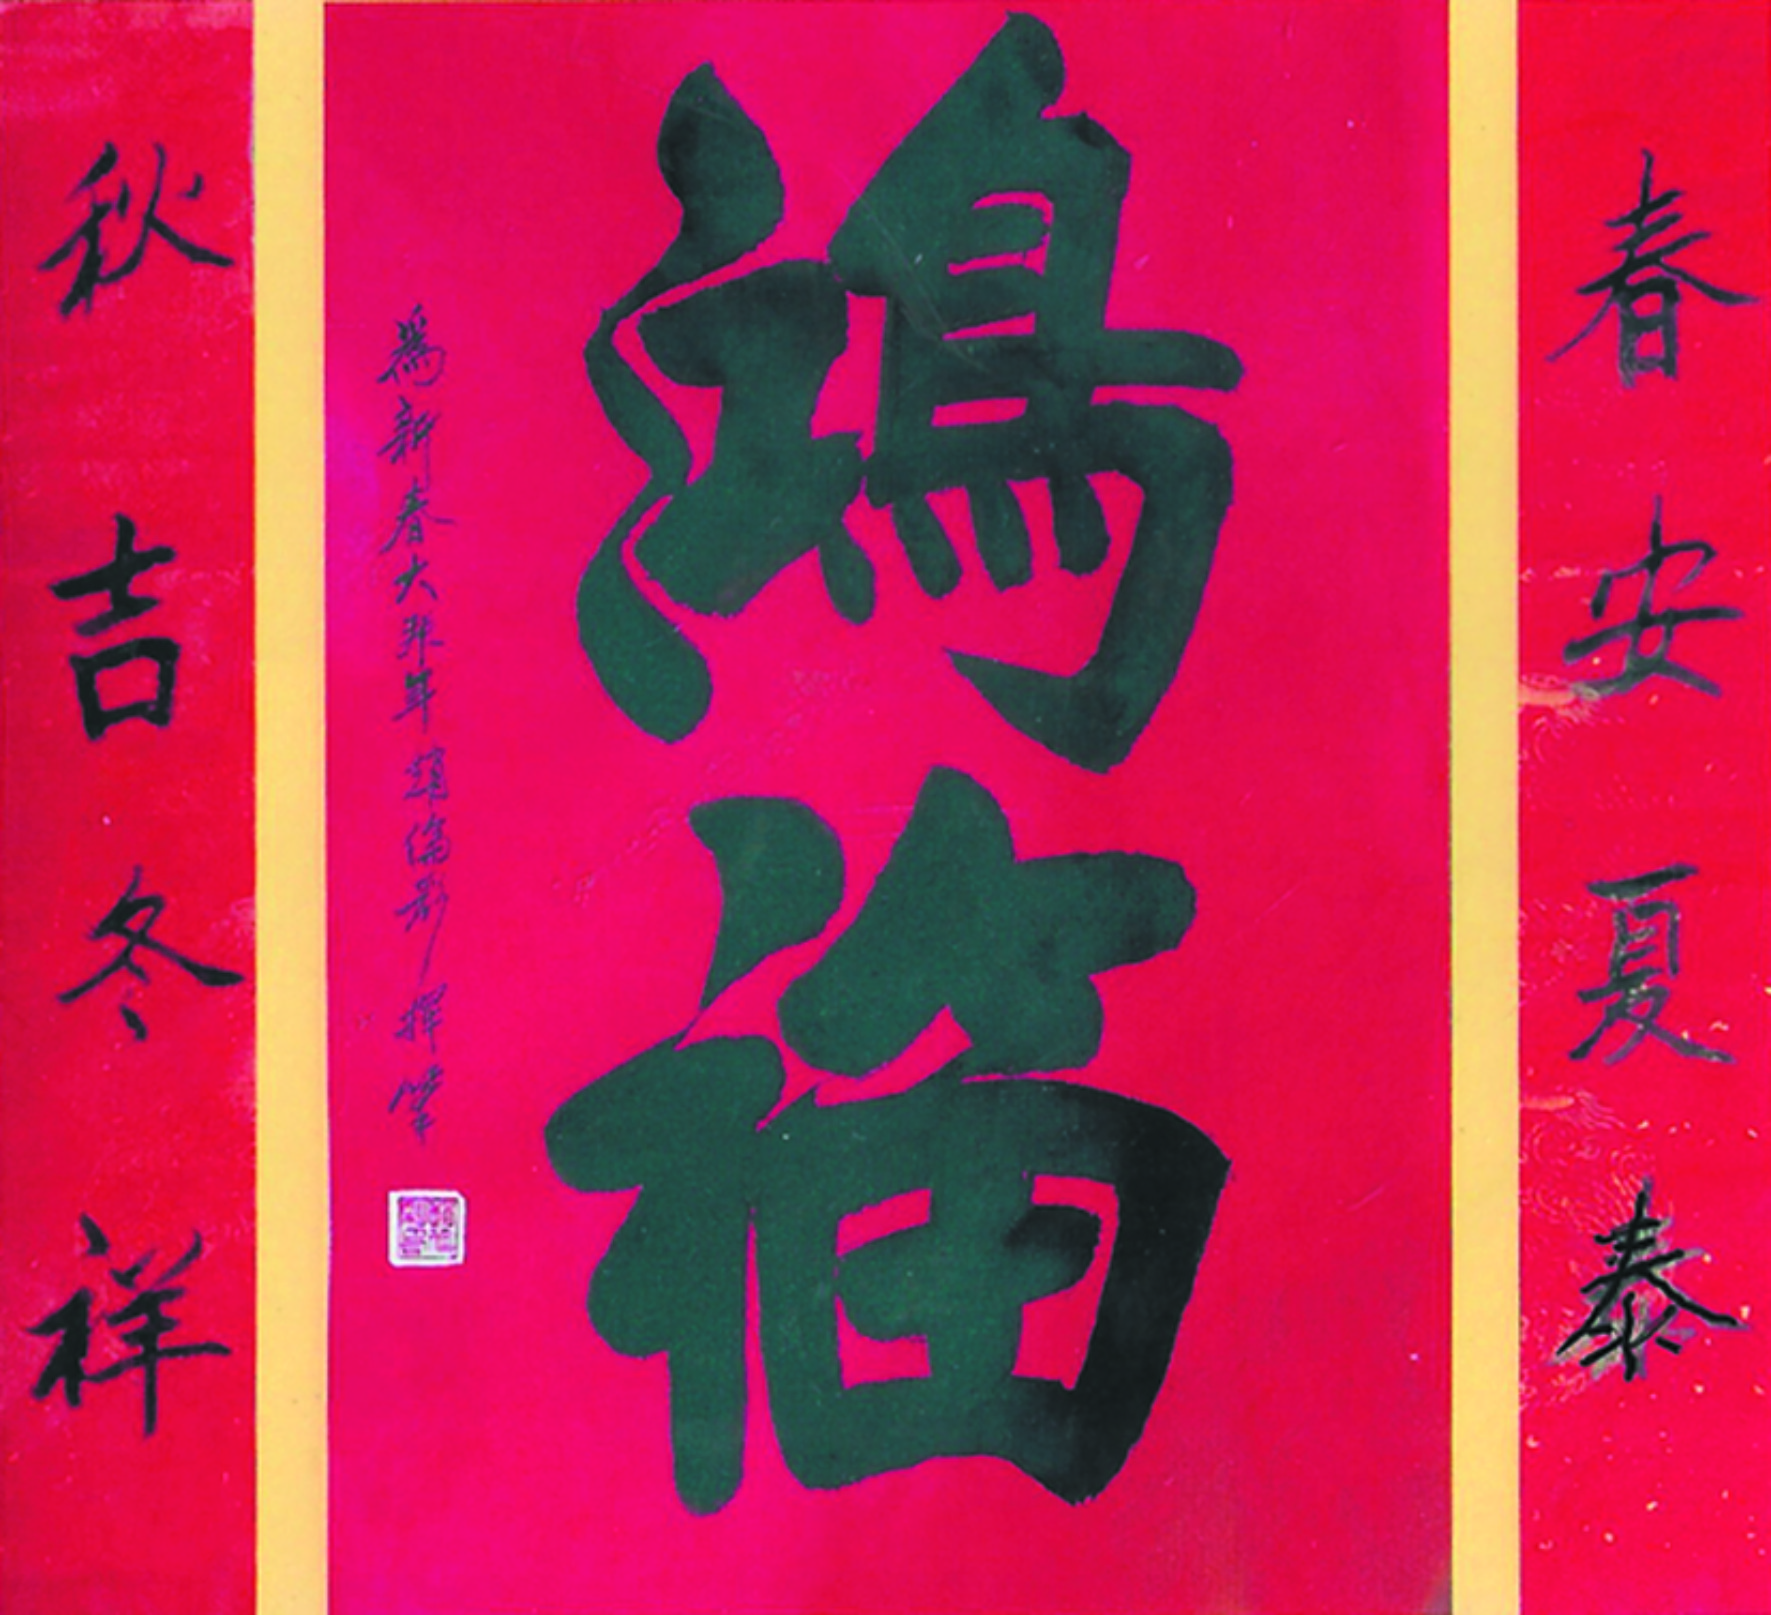 春安夏泰
鴻福
為新春大非年趙倫彩揮筆
秋吉冬祥